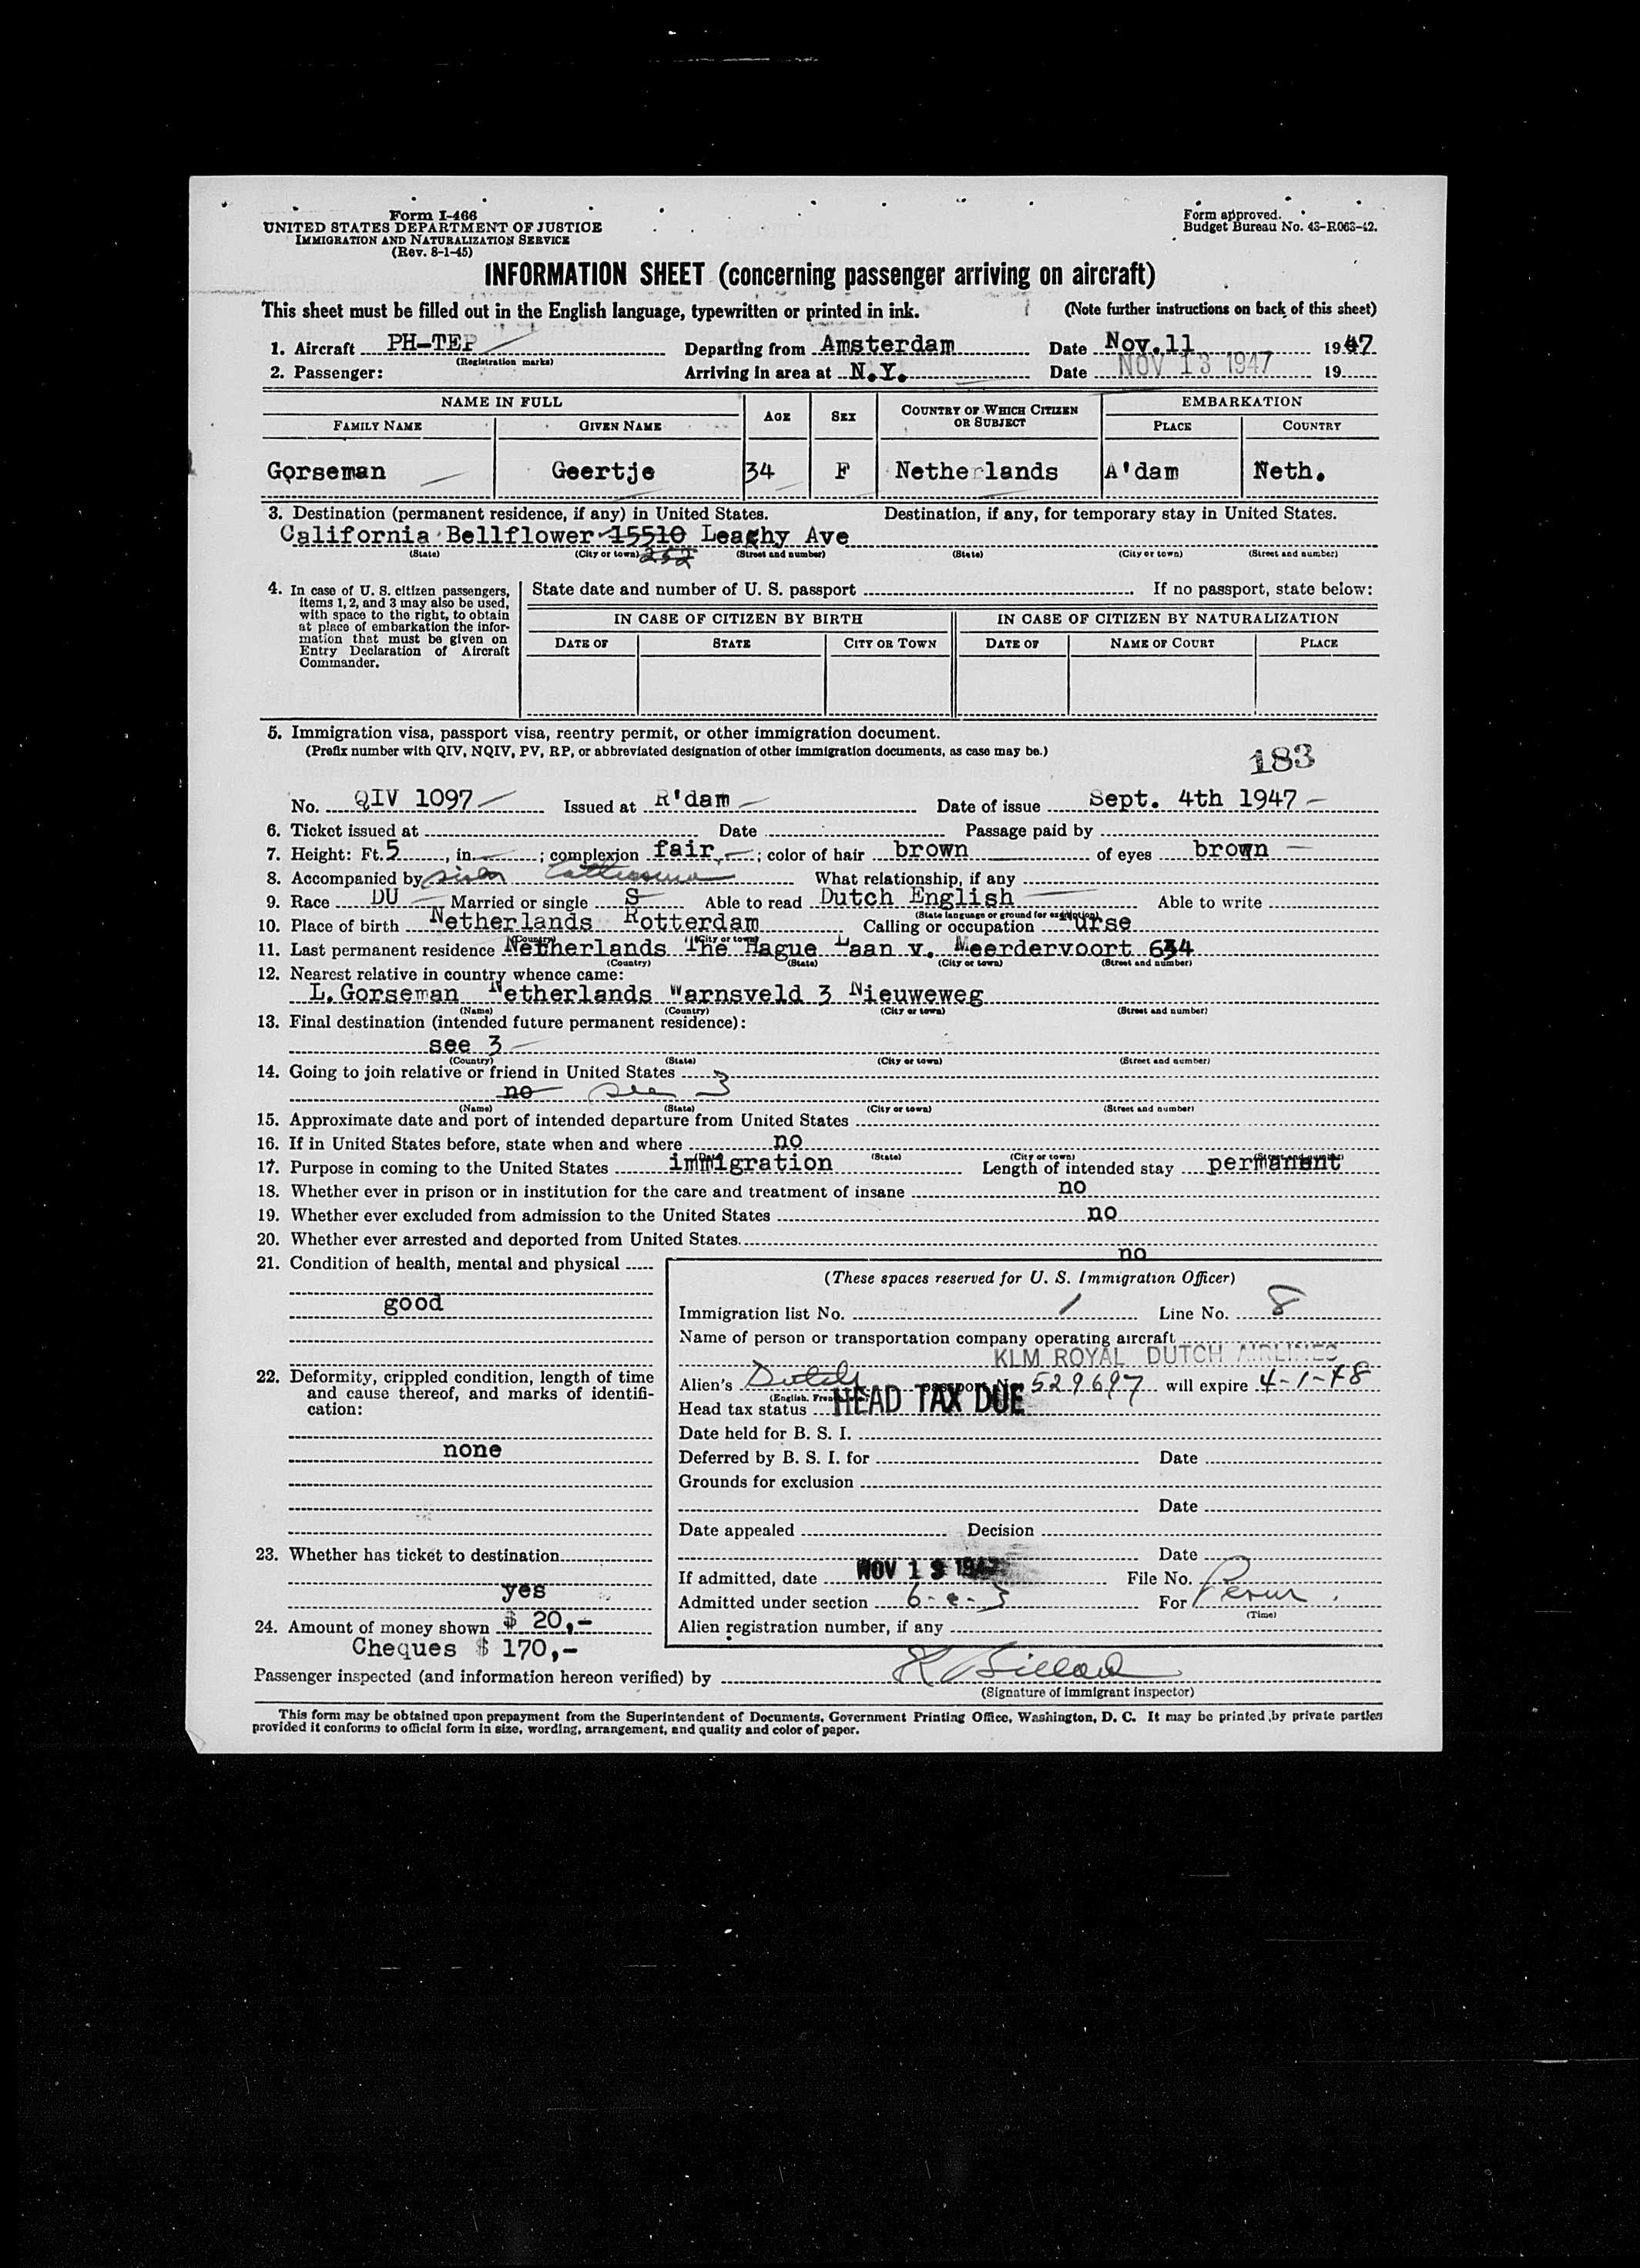 Form I-466
UNITED STATES DEPARTMENT OF JUSTICE
IMMIGRATION AND NATURALIZATION SERVICE
(Rev. 8-1-45)
Form approved.
Budget Bureau No. 43-R063-42.
INFORMATION SHEET (concerning passenger arriving on aircraft)
This sheet must be filled out in the English language, typewritten or printed in ink. (Note further instructions on back of this sheet)
1. Aircraft PH-TEP Departing from Amsterdam Date Nov.11 1947
(Registration marks)
2. Passenger: Arriving in area at N.Y. Date NOV 13 1947 19
NAME IN FULL AGE SEX COUNTRY OF WHICH CITIZEN OR SUBJECT EMBARKATION
FAMILY NAME GIVEN NAME PLACE COUNTRY
Gorseman Geertje 34 F Netherlands A'dam Neth.
3. Destination (permanent residence, if any) in United States. Destination, if any, for temporary stay in United States.
California Bellflower 15510 Leaghy Ave
(State) (City or town) 252 (Street and number) (State) (City or town) (Street and number)
4. In case of U. S. citizen passengers, items 1, 2, and 3 may also be used, with space to the right, to obtain at place of embarkation the information that must be given on Entry Declaration of Aircraft Commander.
State date and number of U. S. passport If no passport, state below:
IN CASE OF CITIZEN BY BIRTH IN CASE OF CITIZEN BY NATURALIZATION
DATE OF STATE CITY OR TOWN DATE OF NAME OF COURT PLACE
5. Immigration visa, passport visa, reentry permit, or other immigration document.
(Prefix number with QIV, NQIV, PV, RP, or abbreviated designation of other immigration documents, as case may be.)
183
No. QIV 1097 Issued at R'dam Date of issue Sept. 4th 1947
6. Ticket issued at Date Passage paid by
7. Height: Ft. 5, in. ; complexion fair ; color of hair brown of eyes brown
8. Accompanied by What relationship, if any
9. Race DU Married or single S Able to read Dutch English Able to write
(State language or ground for exemption)
10. Place of birth Netherlands Rotterdam Calling or occupation nurse
(Country) (City or town)
11. Last permanent residence Netherlands The Hague Laan v. Meerdervoort 634
(Country) (State) (City or town) (Street and number)
12. Nearest relative in country whence came:
L. Gorseman Netherlands Warnsveld 3 Nieuweweg
(Name) (Country) (City or town) (Street and number)
13. Final destination (intended future permanent residence):
see 3
(Country) (State) (City or town) (Street and number)
14. Going to join relative or friend in United States 3
no see
(Name) (State) (City or town) (Street and number)
15. Approximate date and port of intended departure from United States
16. If in United States before, state when and where no
(Date) (State) (City or town) (Street and number)
17. Purpose in coming to the United States immigration Length of intended stay permanent
18. Whether ever in prison or in institution for the care and treatment of insane no
19. Whether ever excluded from admission to the United States no
20. Whether ever arrested and deported from United States. no
21. Condition of health, mental and physical
good
22. Deformity, crippled condition, length of time and cause thereof, and marks of identification:
none
23. Whether has ticket to destination
yes
24. Amount of money shown $ 20,-
Cheques $ 170,-
(These spaces reserved for U. S. Immigration Officer)
Immigration list No. 1 Line No. 8
Name of person or transportation company operating aircraft
KLM ROYAL DUTCH AIRLINES
Alien's Dutch passport No. 529697 will expire 4-1-48
Head tax status HEAD TAX DUE
Date held for B. S. I.
Deferred by B. S. I. for Date
Grounds for exclusion
Date
Date appealed Decision
Date
If admitted, date NOV 13 1947 File No.
Admitted under section 6-e-3 For Perm
(Time)
Alien registration number, if any
Passenger inspected (and information hereon verified) by
(Signature of immigrant inspector)
This form may be obtained upon prepayment from the Superintendent of Documents, Government Printing Office, Washington, D. C. It may be printed by private parties
provided it conforms to official form in size, wording, arrangement, and quality and color of paper.